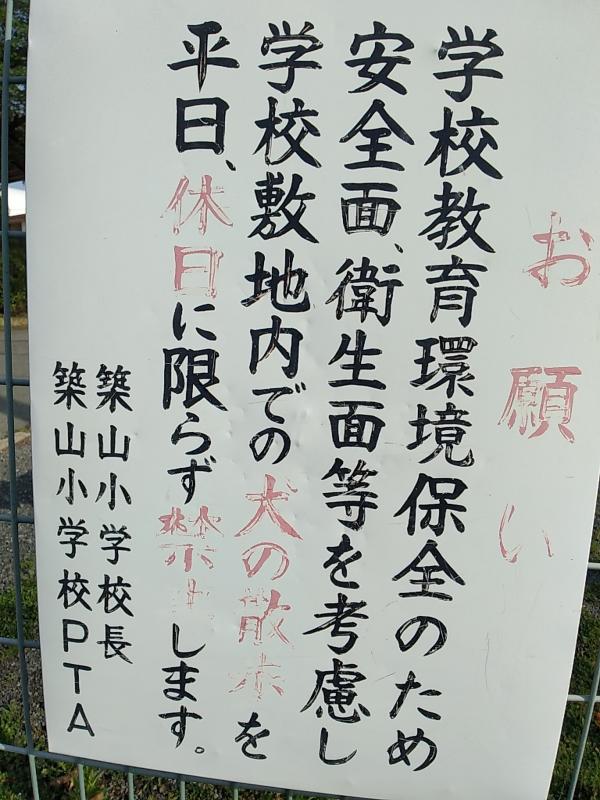 お願い
学校教育環境保全のため
安全面、衛生面等を考慮し
学校敷地内での犬の散歩を
平日、休日に限らず禁止します。
築山小学校長
築山小学校PTA